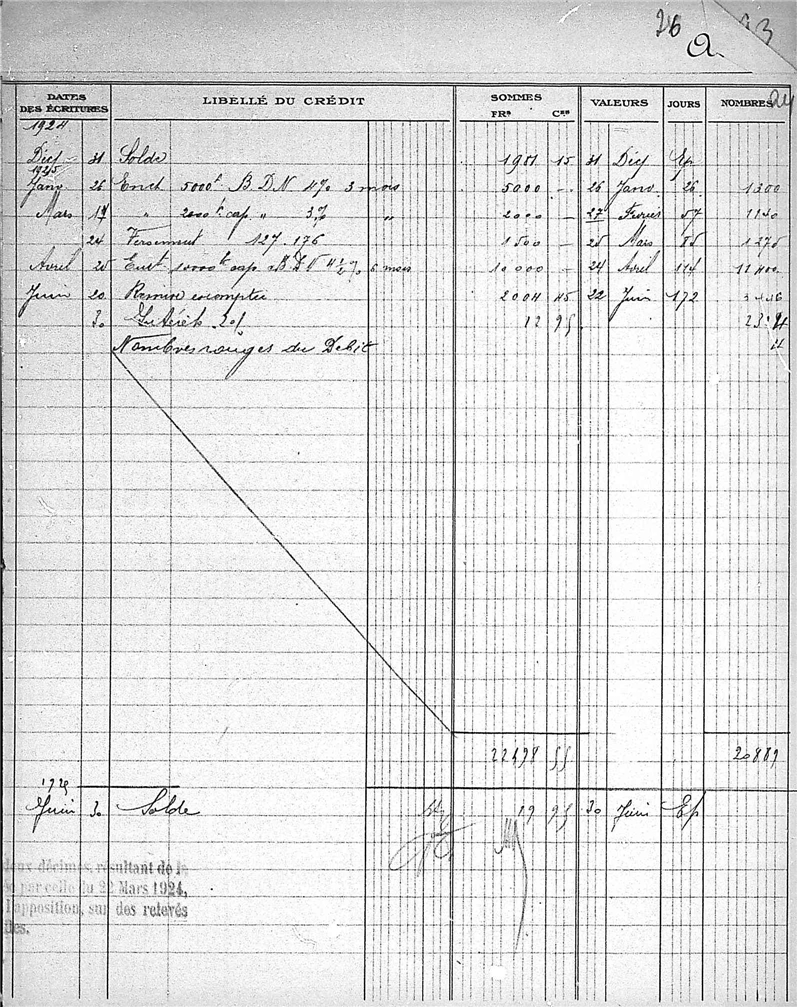 26 a. 23
24
DATES DES ÉCRITURES LIBELLÉ DU CRÉDIT SOMMES FRS CMES VALEURS JOURS NOMBRES
1924
Déc 31 Solde 1981 15 31 Déc Ep
1925
Janv 26 Enct 5000f B D N 4% 3 mois 5000 - 26 Janv. 26 1300
Mars 17 " 2000f cap. " 3% " 2000 - 27 Février 57 1140
24 Versement 127.176 1500 - 25 Mars 85 1275
Avril 25 Enct 10000f cap. B D N 4½% 6 mois 10000 - 24 Avril 114 11400
Juin 20 Remise escomptée 2004 45 22 Juin 172
30 Intérêts 12 95
Nombres rouges du Débit 4
22498 55 20889
1925
Juin 30 Solde 19 95 30 Juin Ep
deux décimes, résultant de
par celle du 22 Mars 1924,
l'apposition, sur des relevés